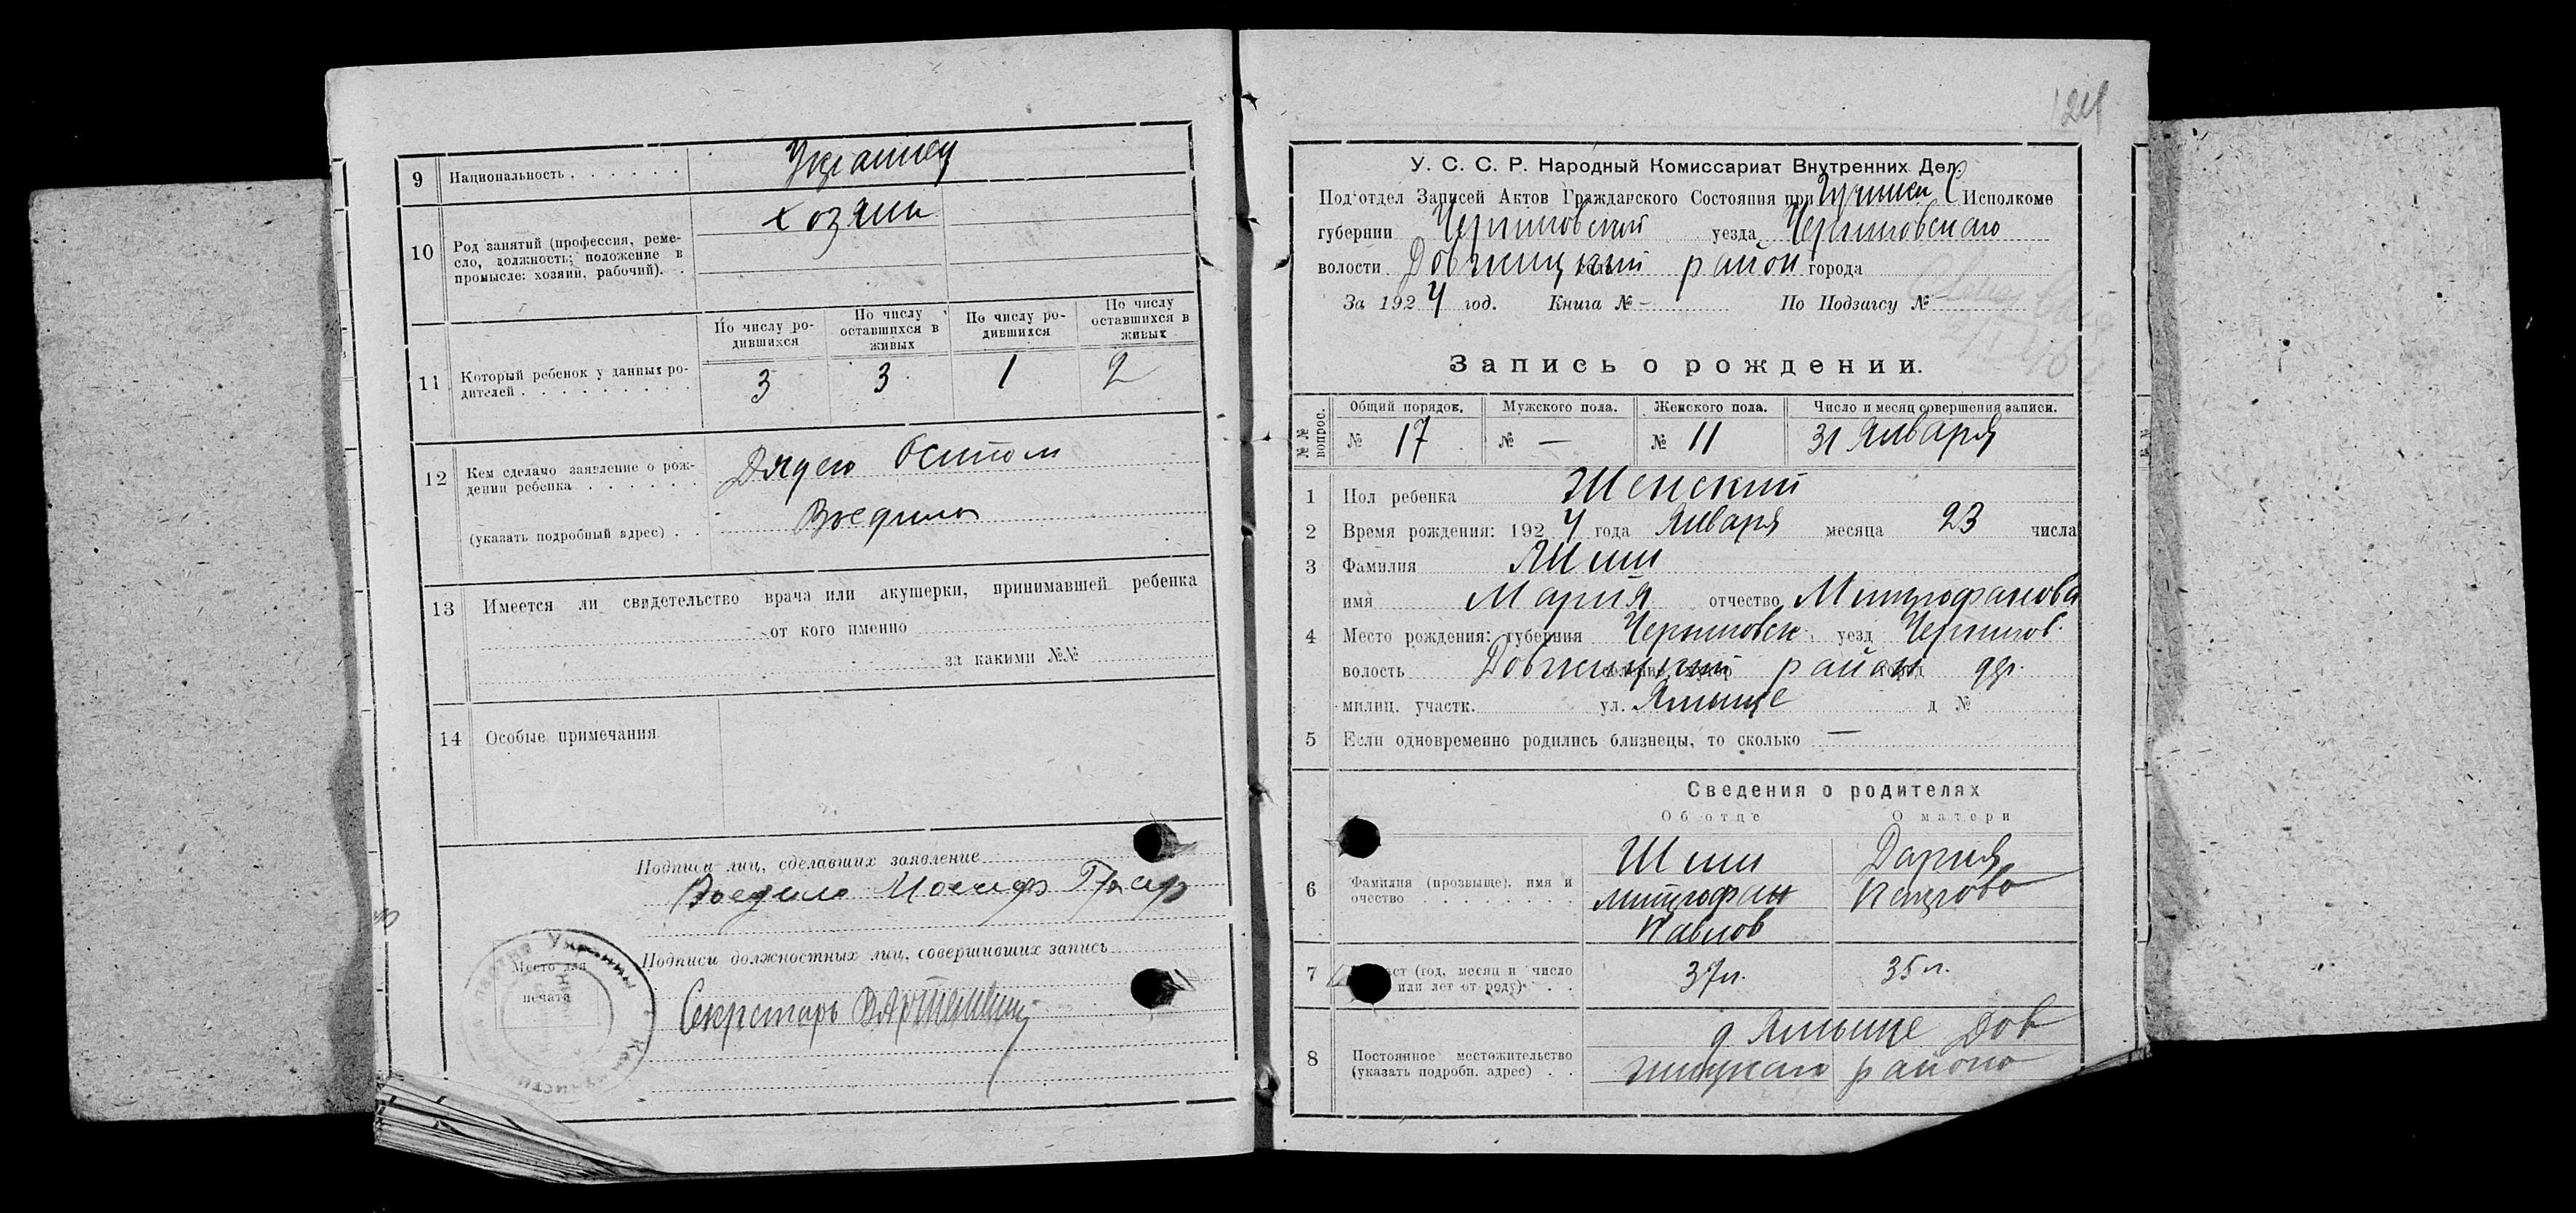 9 Национальность Украинец
10 Род занятий (профессия, реме-
сло, должность; положение в
промысле: хозяин, рабочий).
хозяин
По числу ро-
дившихся
По числу
оставшихся в
живых
По числу ро-
дившихся
По числу
оставшихся в
живых
11 Который ребенок у данных ро-
дителей
3 3 1 2
12 Кем сделано заявление о рож-
дении ребенка
Дядею Осипом
(указать подробный адрес)
13 Имеется ли свидетельство врача или акушерки, принимавшей ребенка
от кого именно
за какими №№
14 Особые примечания
Подписи лиц, сделавших заявление
Иосиф
Подписи должностных лиц, совершивших запись
Место для
печати
Секретарь
124
У. С. С. Р. Народный Комиссариат Внутренних Дел
Под'отдел Записей Актов Гражданского Состояния при Исполкоме
губернии Черниговской уезда Черниговскаго
волости Довжицкий район города
За 1924 год. Книга № – По Подзагсу №
Запись о рождении.
№№ вопрос.
Общий порядок. Мужского пола. Женского пола. Число и месяц совершения записи.
№ 17 № — № 11 31 Января
1 Пол ребенка Женский
2 Время рождения: 1924 года Января месяца 23 числа
3 Фамилия
имя Мария отчество Митрофанова
4 Место рождения: губерния Черниговск. уезд Чернигов.
волость Довжицкий район дер.
милиц. участк. ул. Ямыще д №
5 Если одновременно родились близнецы, то сколько —
Сведения о родителях
Об отце О матери
6 Фамилия (прозвище), имя и
очество
Шиш Дария
Митрофан Петрова
Павлов
7 (год, месяц и число
или лет от роду)
37 л. 35 л.
8 Постоянное местожительство
(указать подробн. адрес)
д. Ямыще Дов
жицкаго района